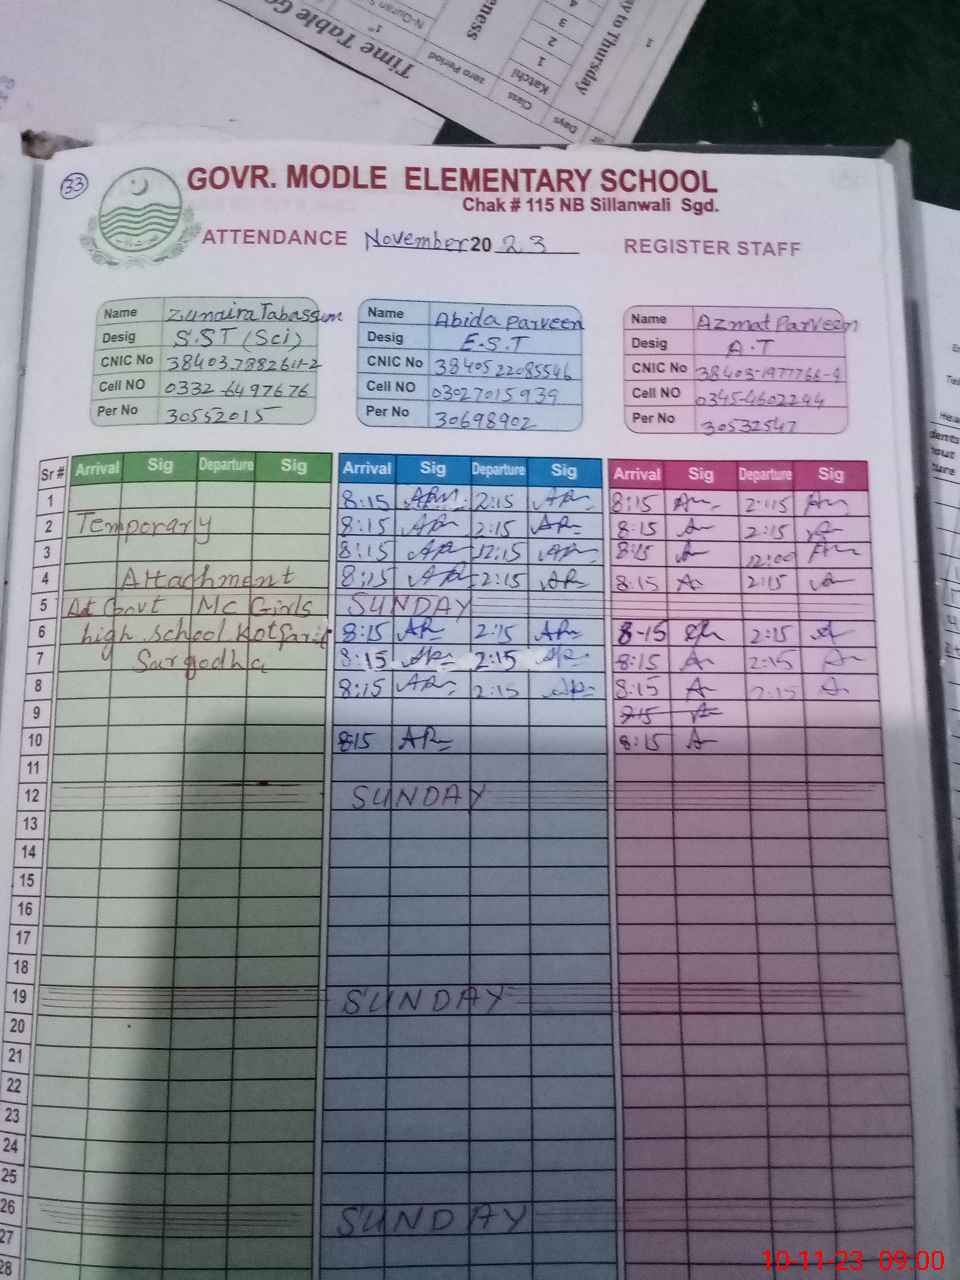 Time Table Go
zero Period
Class
Katchi
1
2
3
4
Days
y to Thursday
eness
33
GOVR. MODLE ELEMENTARY SCHOOL
Chak # 115 NB Sillanwali Sgd.
ATTENDANCE November 2023 REGISTER STAFF
Name Zunaira Tabassum
Desig S.S.T (Sci)
CNIC No
Cell NO 0332-6497676
Per No 30552015
Name Abida Parveen
Desig E.S.T
CNIC No 3840522085546
Cell NO 03027015939
Per No 30698902
Name Azmat Parveen
Desig A.T
CNIC No 38403-1977766-4
Cell NO 0345-4602244
Per No 30532547
Sr # Arrival Sig Departure Sig Arrival Sig Departure Sig Arrival Sig Departure Sig
1 8:15 2:15 8:15 2:15
2 Temporary 8:15 AR 2:15 AR 8:15 A 2:15
3 8:15 AR 12:15 AR 8:15 A 12:00
4 Attachment 8:15 AR 2:15 AR 8:15 A 2:15
5 At Govt MC Girls SUNDAY
6 high school Kot Farid 8:15 AR 2:15 AR 8-15 2:15
7 Sargodha 8:15 AR 2:15 AR 8:15 A 2:15 A
8 8:15 AR 2:15 AR 8:15 A 2:15 A
9
10 815 AR 8:15 A
11
12 SUNDAY
13
14
15
16
17
18
19 SUNDAY
20
21
22
23
24
25
26 SUNDAY
27
28
10-11-23 09:00